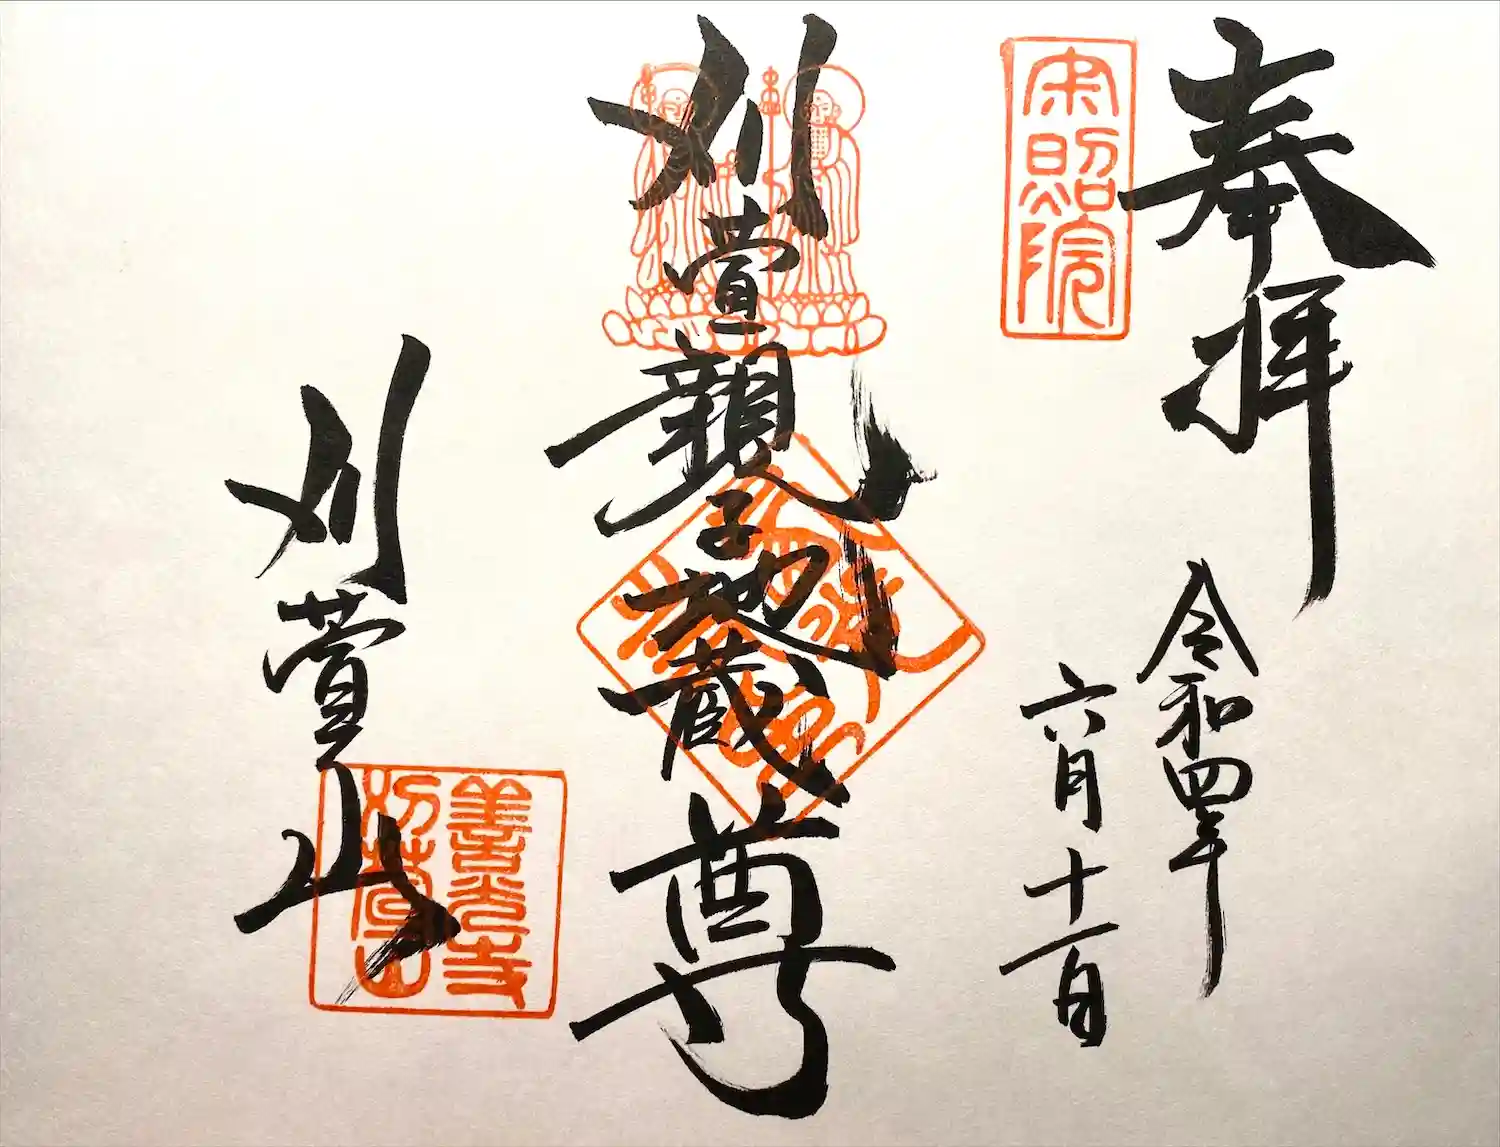 奉拝
令和四年
宋昭院
六月十一日
刈萱親子地蔵尊
刈萱山
善光寺
刈萱山